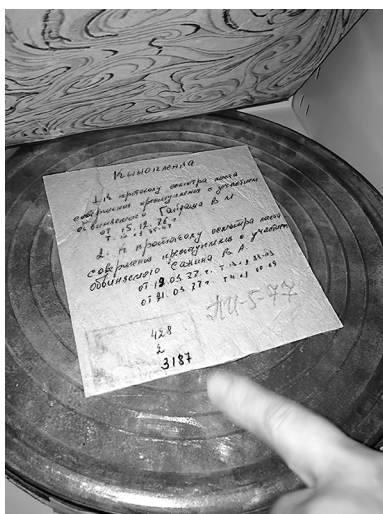 Кинопленка
1. К протоколу осмотра места
совершения преступления с участием
обвиняемого В. М
от 15.12.76 г.
2. К протоколу осмотра места
совершения преступления с участием
обвиняемого Сажина В. А.
от 18.03.77 г.
от 21.03.77 г.
5-77
428
2
3187